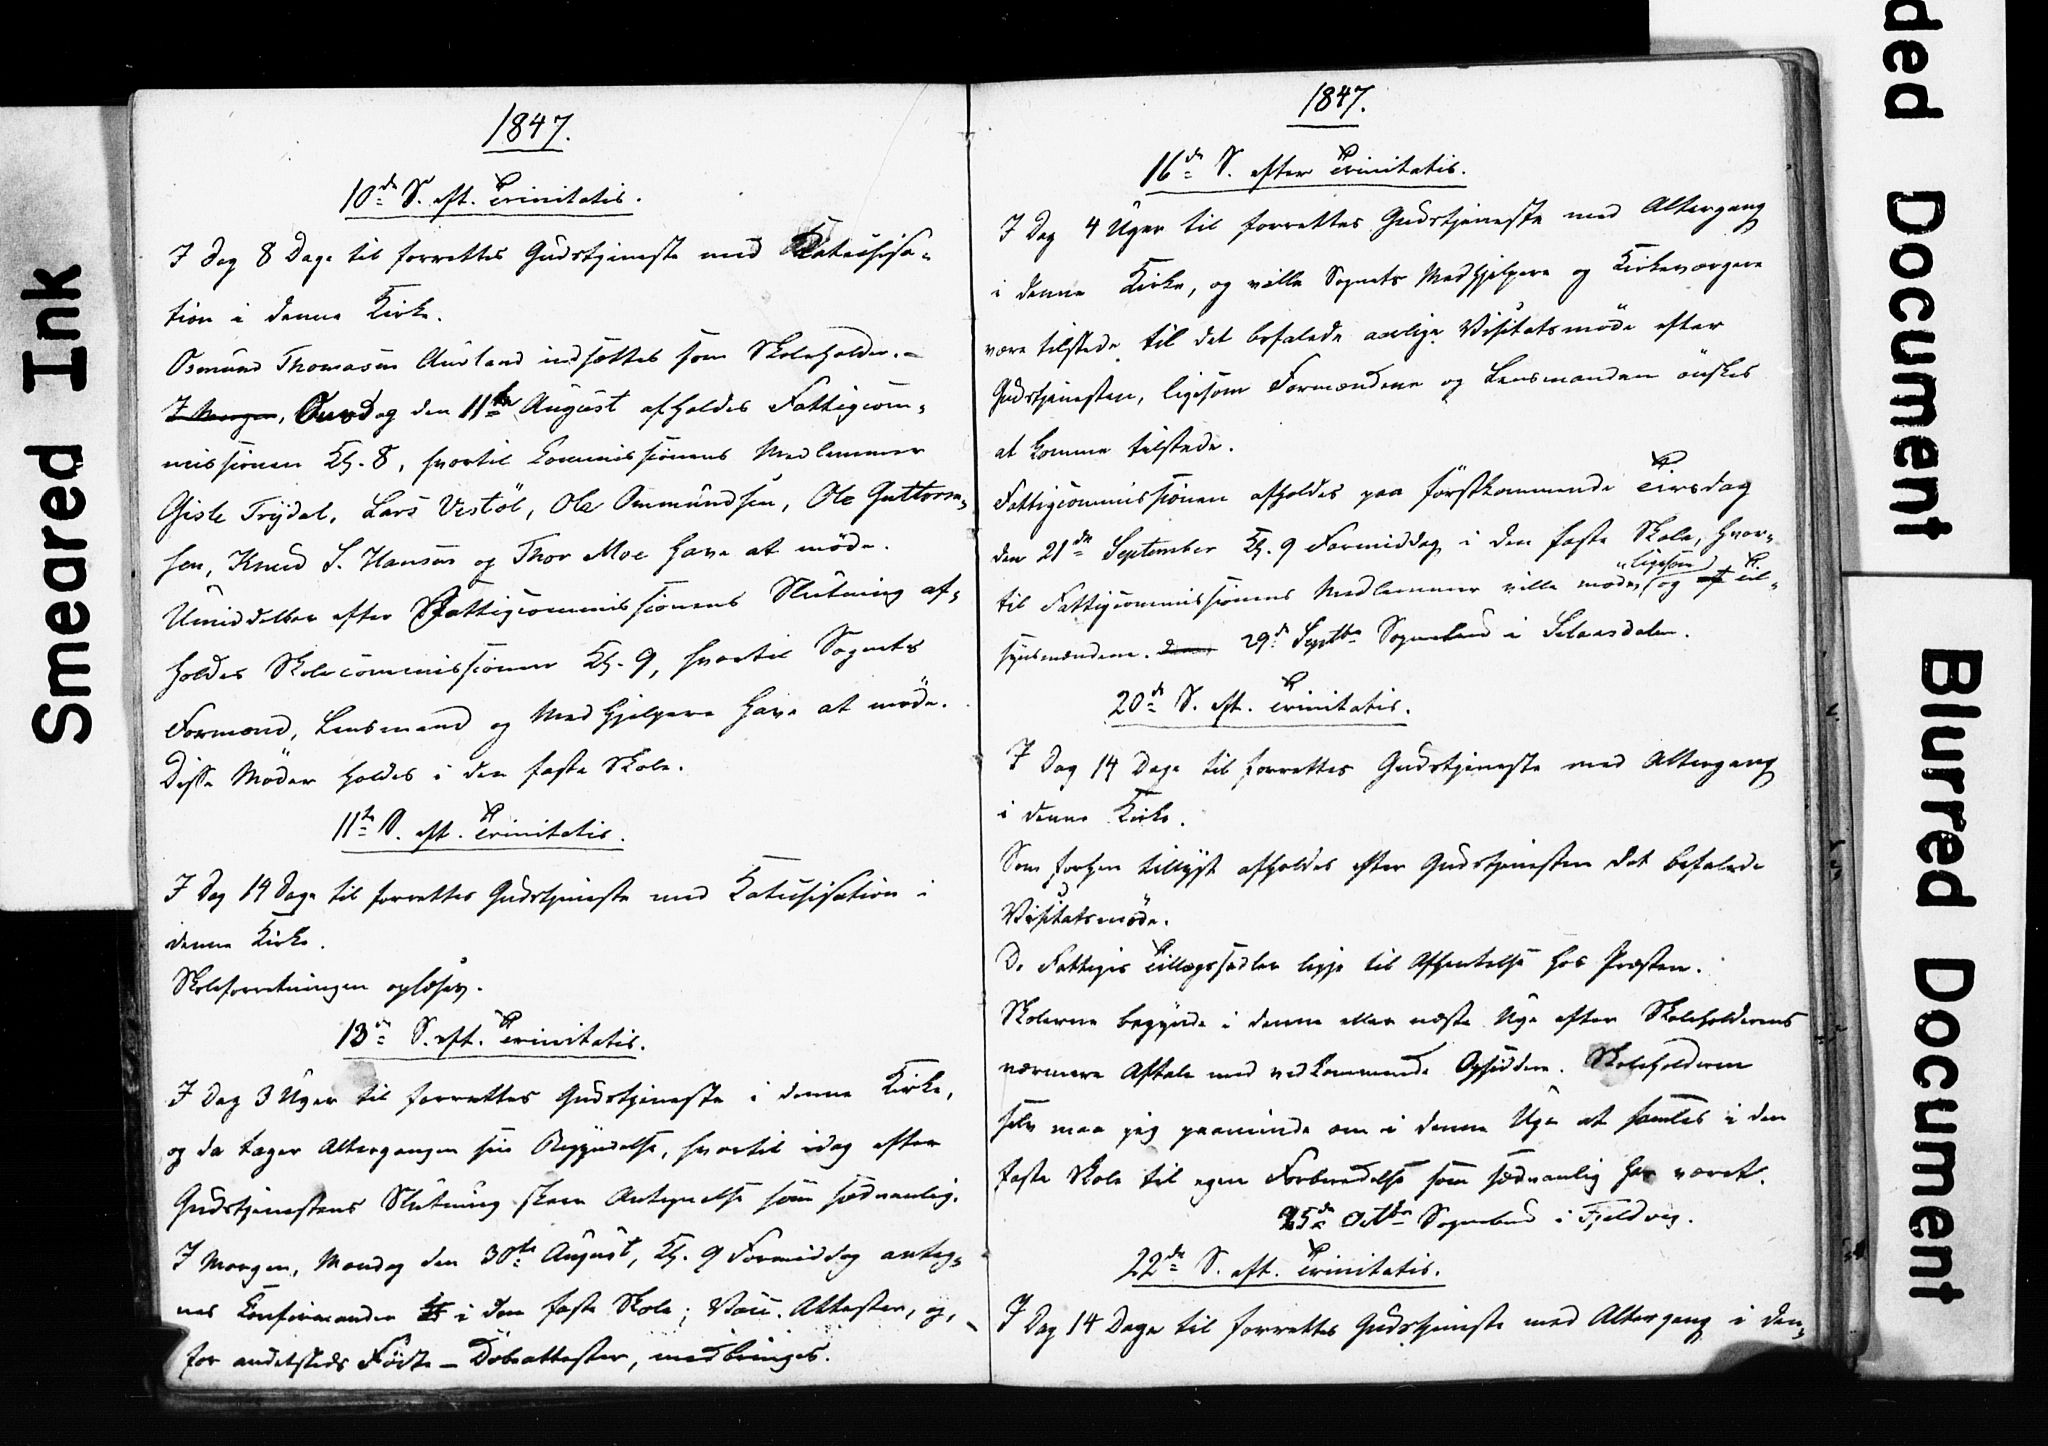 Smeared Ink
1847.
10de S. eft. Trinitatis.
I Dag 8 Dage til forrettes Gudstjeneste med Katechisa-
tion i denne Kirke.
Osmund Thomasen Aurland indsættes som Skoleholder. -
I Morgen, Onsdag den 11te August afholdes Fattigcom-
missionen Kl. 8, hvortil Commissionens Medlemmer
Gisle Trydal, Lars Vestöl, Ole Ommundsen, Ole Guttorm-
sen, Knud S. Hansson og Thor Moe have at möde.
Umiddelbar efter Fattigcommissionens Slutning af-
holdes Skolecommissionen Kl. 9, hvortil Sognets
Formænd, Lensmand og Medhjelpere have at möde.
Disse Möder holdes i den faste Skole.
11te S. eft. Trinitatis.
I Dag 14 Dage til forrettes Gudstjeneste med Katechisation i
denne Kirke.
Skoleforretningen oplæses.
13de S. eft. Trinitatis.
I Dag 3 Uger til forrettes Gudstjeneste i denne Kirke,
og da tager Altergangen sin Begyndelse, hvortil idag efter
Gudstjenestens Slutning skeer Antegnelse som sædvanlig.
I Morgen, Mandag den 30te August, Kl. 9 Formiddag anteg-
nes Confirmander i den faste Skole; Vacc. Attester, og,
for andetsteds Födte - Döbeattester, medbringes.
1847.
16de S. efter Trinitatis.
I Dag 4 Uger til forrettes Gudstjeneste med Altergang
i denne Kirke, og ville Sognets Medhjelpere og Kirkeværgere
være tilstede til det befalede aarlige Visitatsmöde efter
Gudstjenesten, ligesom Formændene og Lensmanden önskes
at komme tilstede.
Fattigcommissionen afholdes paa förstkommende Tirsdag
den 21de September Kl. 9 Formiddag i den faste Skole, hvor-
til Fattigcommissionens Medlemmer ville möde, ligesom og Til-
synsmændene. 29de Septbr Sognebud i
20de S. eft. Trinitatis.
I Dag 14 Dage til forrettes Gudstjeneste med Altergang
i denne Kirke.
Som forhen tillyst afholdes efter Gudstjenesten det befalede
Visitatsmöde.
De Fattiges Tillægssedler ligge til Afhentelse hos Præsten.
Skolerne begynde i denne eller næste Uge efter Skoleholderens
nærmere Aftale med vedkommende Opsiddere. Skoleholderne
selv maa jeg paaminde om i denne Uge at samles i den
faste Skole til egen Forberedelse som sædvanlig har været.
25de Octbr Sognebud i Fjeldvig.
22de S. eft. Trinitatis.
I Dag 14 Dage til forrettes Gudstjeneste med Altergang i den-
ded Document
Blurred Document